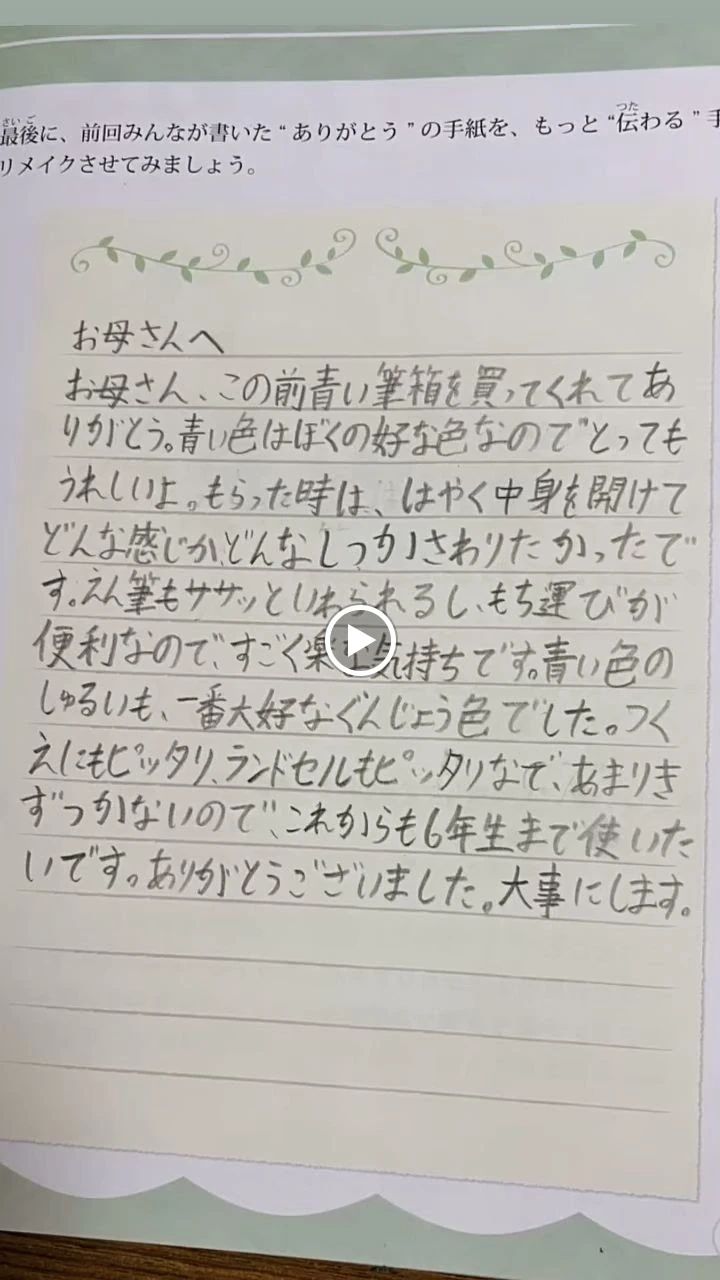 最後に、前回みんなが書いた“ありがとう”の手紙を、もっと“伝わる”手
リメイクさせてみましょう。
お母さんへ
お母さん、この前青い筆箱を買ってくれてあ
りがとう。青い色はぼくの好な色なのでとっても
うれしいよ。もらった時は、はやく中身を開けて
どんな感じか、どんなしつかさわりたかったで
す。えん筆もササッといれられるし、もち運びが
便利なので、すごく楽な気持ちです。青い色の
しゅるいも、一番大好なぐんじょう色でした。つく
えにもピッタリ、ランドセルもピッタリなで、あまりき
ずつかないので、これからも6年生まで使いた
いです。ありがとうございました。大事にします。